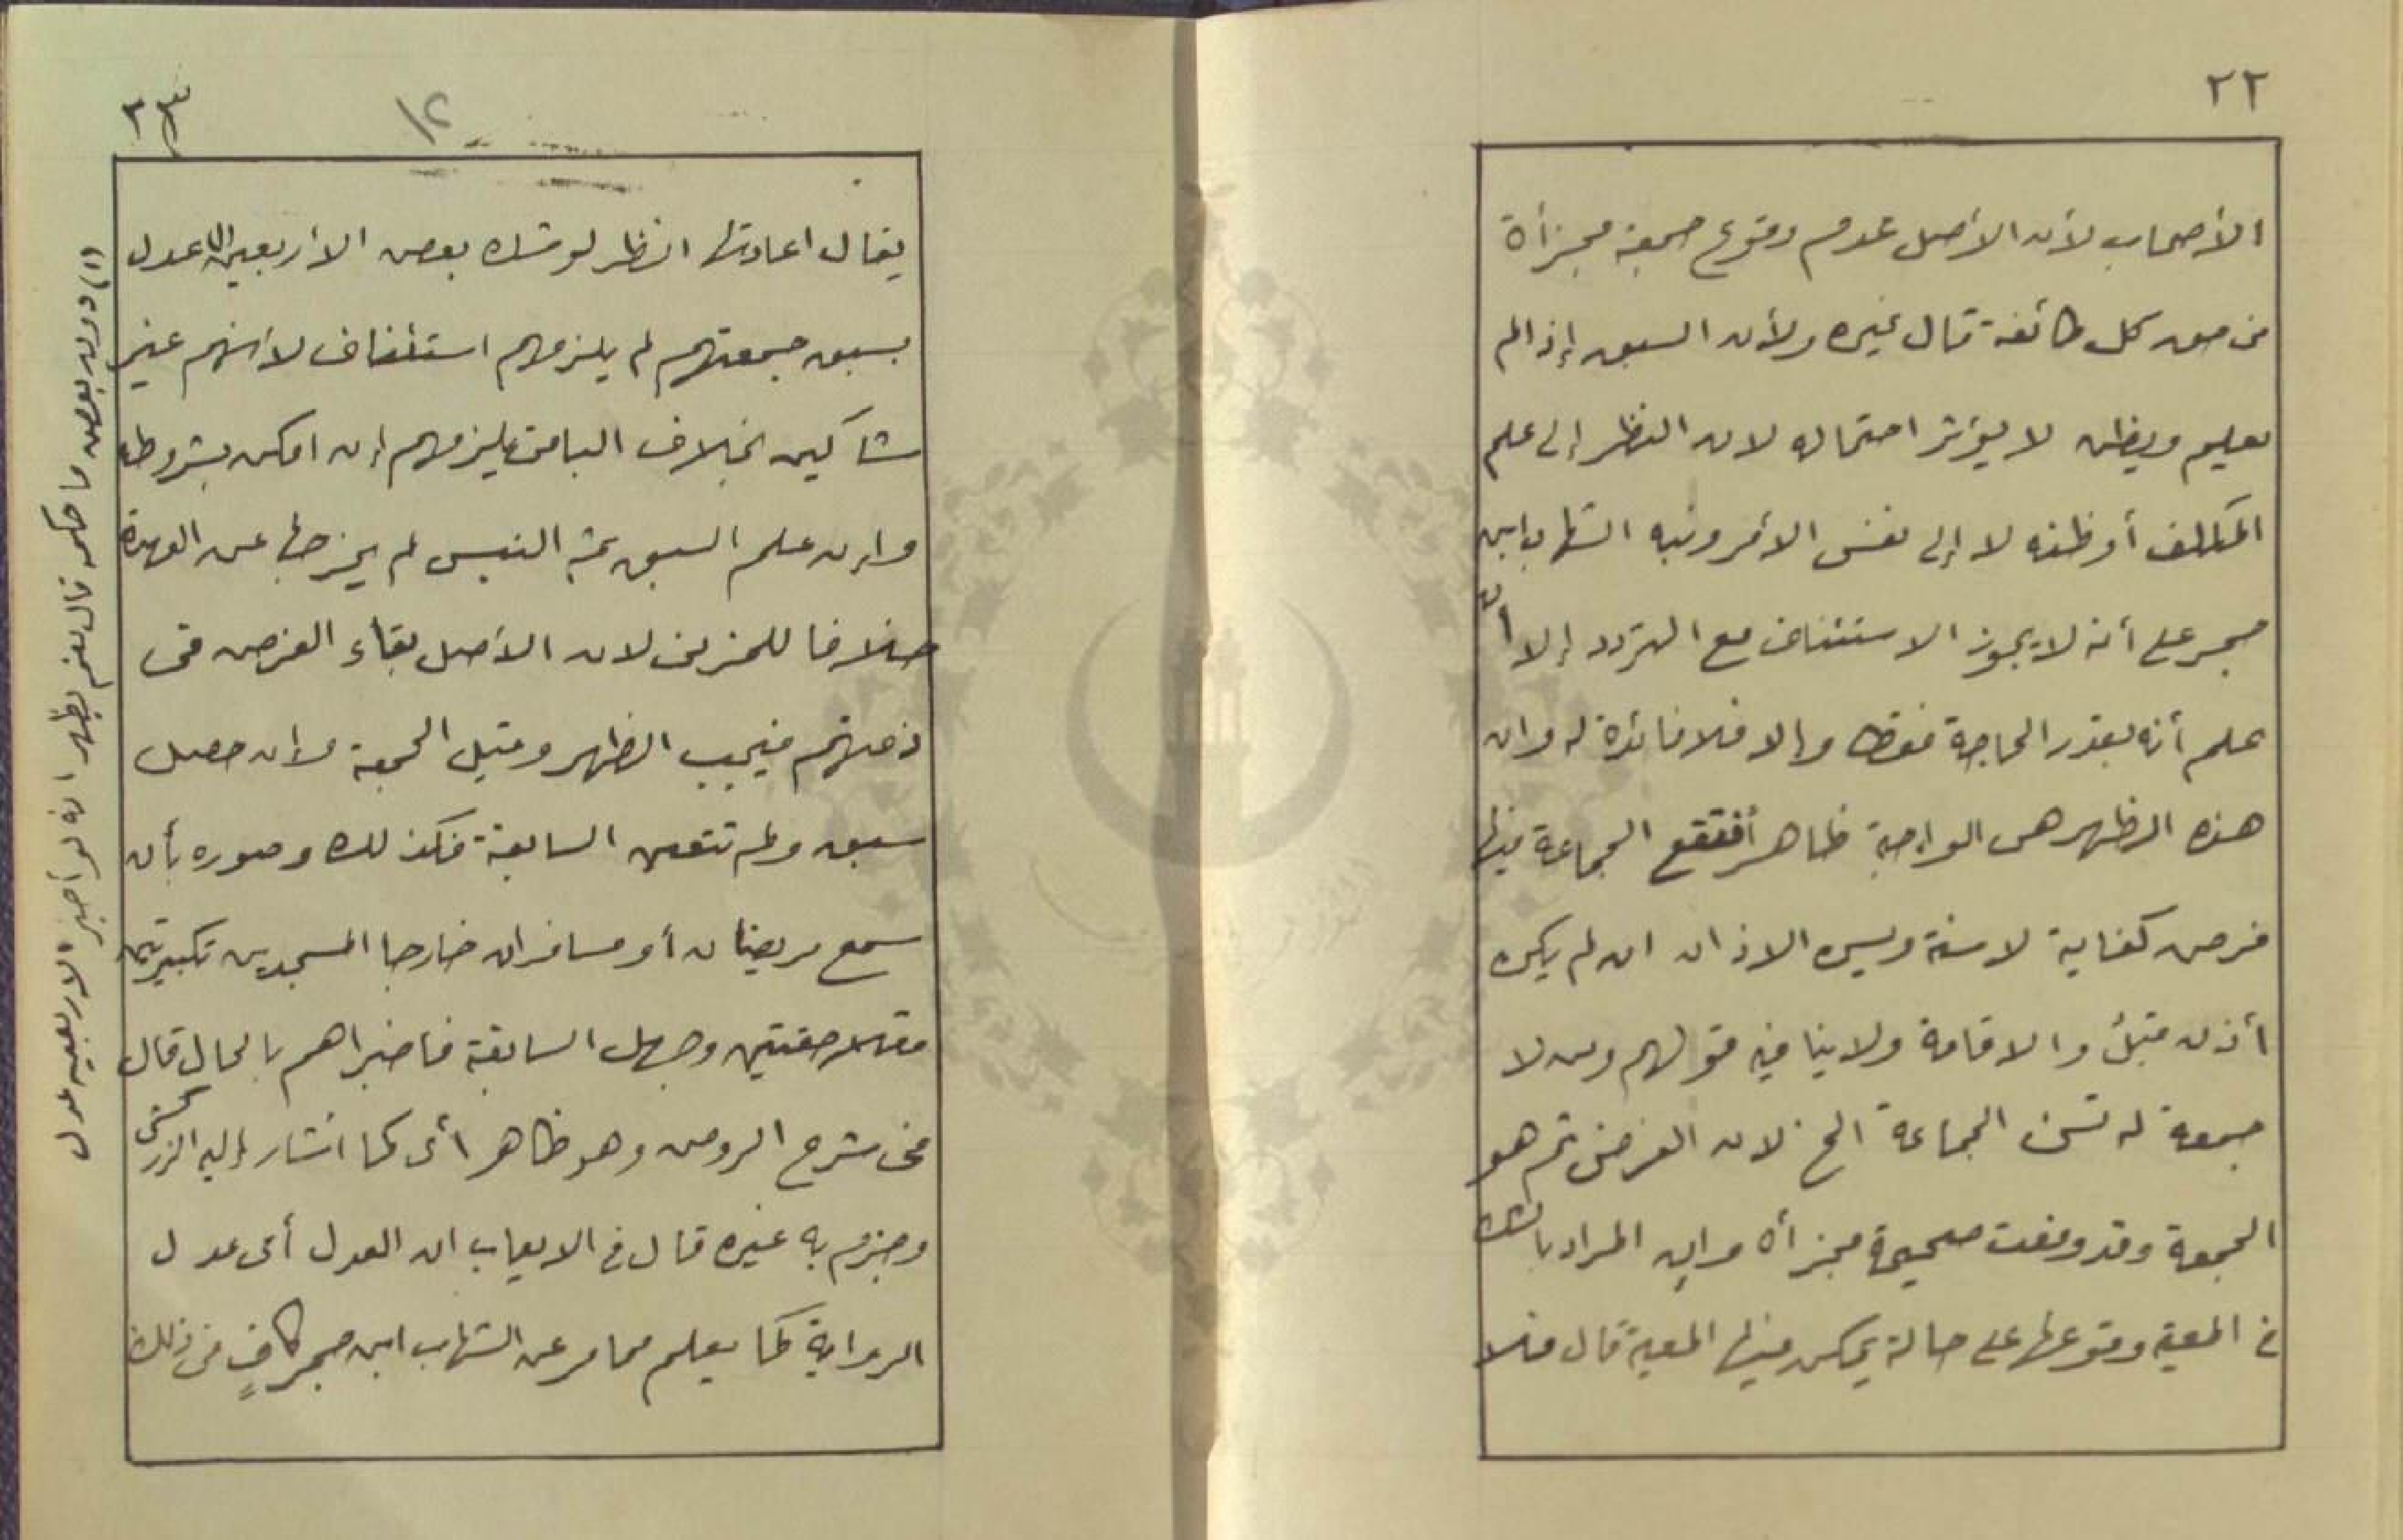 ٢٢
الأصحاب لأن الأصل عدم وقوع جمعة مجزأة
فى حق كل طائفة قال غيره ولأن السبق إذا لم
يعلم ويظن لا يؤثر احتماله لان النظر إلى علم
المكلف أو ظنه لا إلى نفس الأمر ونبه الشهاب ابن
حجر على أنه لا يجوز الاستئناف مع التردد إلا ان
علم أنه بقدر الحاجة فقط والا فلا فائدة له وان
هذه الظهر هى الواجبة ظاهرأ فتقع الجماعة فيها
فرض كفاية لا سنة ويسن الاذان ان لم يكن
أذن قبل والاقامة ولا ينافيه قولهم ومن لا
جمعة له تسن الجماعة الخ لان الفرض ثم هو
الجمعة وقد وقعت صحيحة مجزأة وان المراد بالشك
فى المعية وقوعها على حالة يمكن فيها المعية قال فلا
٢٣
١٢
يقال اعادتها الظر لو شك بعض الأربعين الا عدل
بسبق جمعتهم لم يلزمهم استئناف لأنهم غير
شاكين بخلاف الباقى يلزمهم إن امكن بشروطه
وان علم السبق ثم التبس لم يخرجا عن العهدة
خلافا للمزنى لان الأصل بقاء الفرض فى
ذمتهم فيجب الظهر وقيل الجمعة وان حصل
سبق ولم تتعين السابقة فكذلك وصوره بأن
سمع مريضان أو مسافران خارجا المسجدين تكبيرتين
متلاحقتين وجهل السابقة فاخبراهم بالحال قال
فى شرح الروض وهو ظاهر أى كما اشار إليه الزركشى
وجزم به غيره قال فى الايعاب ان العدل أى عدل
الرواية كما يعلم مما مر عن الشهاب ابن حجر كافٍ فى ذلك
(١) دون بعض ما حكمه قال نعم يظهر انه لو أخبر الاربعين عدل